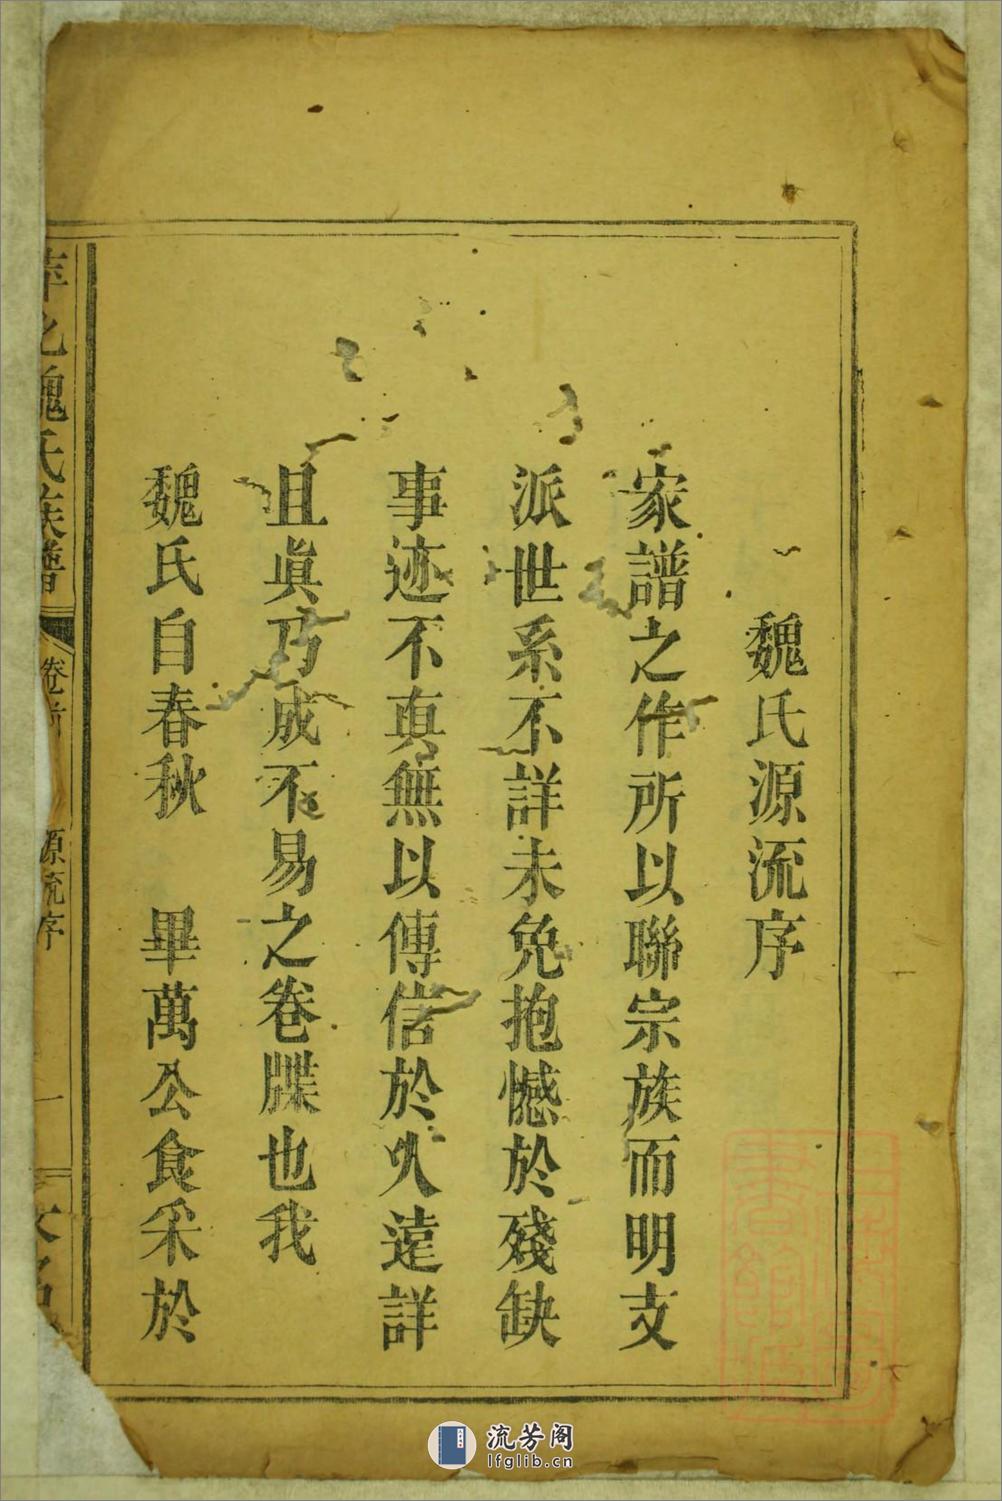 魏氏源流序
家譜之作所以聯宗族而明支
派世系不詳未免抱憾於殘缺
事迹不真無以傳信於久遠詳
且眞乃成不易之卷牒也我
魏氏自春秋　畢萬公食采於
魏氏族譜
卷首
源流序
一
流芳阁
lfglib.cn